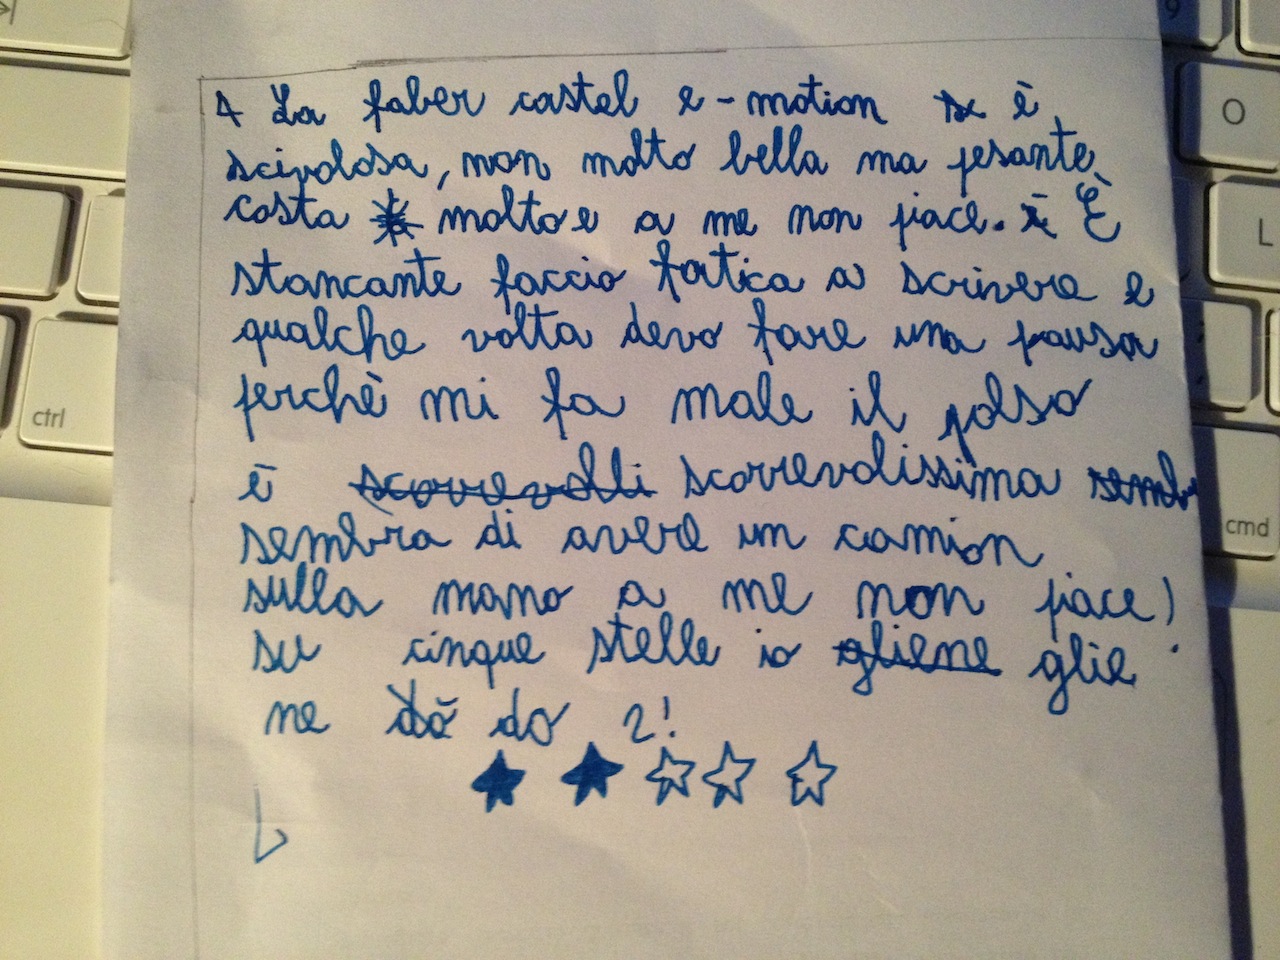 4 La faber castel e-motion se è
scivolosa, non molto bella ma pesante,
costa molto e a me non piace. è È
stancante faccio fatica a scrivere e
qualche volta devo fare una pausa
perchè mi fa male il polso
è scorrevolli scorrevolissima semb
sembra di avere un camion
sulla mano a me non piace!
su cinque stelle io gliene glie
ne dò do 2!
ctrl
9
O
L
;
cmd